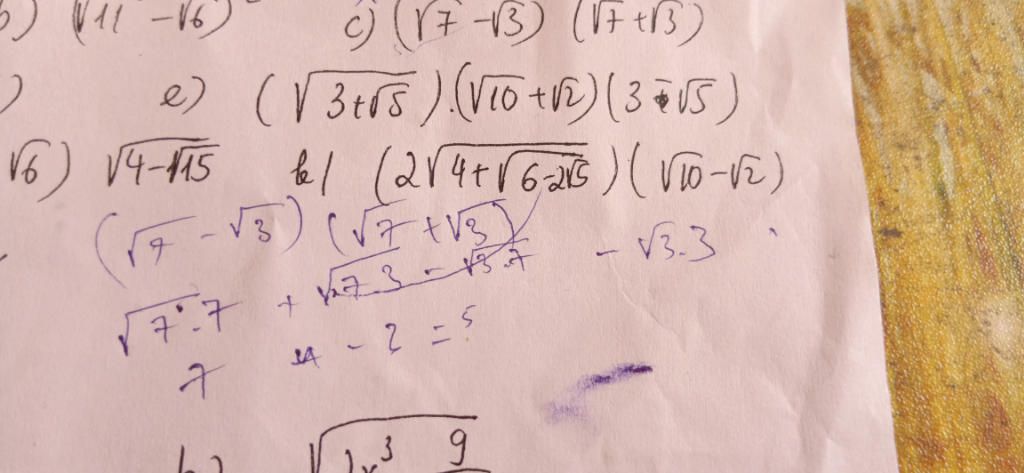 b) (√11 - √6) c) (√7 - √3) (√7 + √3)
) e) (√(3+√5)).(√10+√2)(3-√5)
√6) √(4-√15) k/ (2√(4+√(6-2√5)))(√10-√2)
(√7 - √3) (√7 + √3)
√7.7 + √7.3 - √3.7 - √3.3
7 - 2 = 5
9